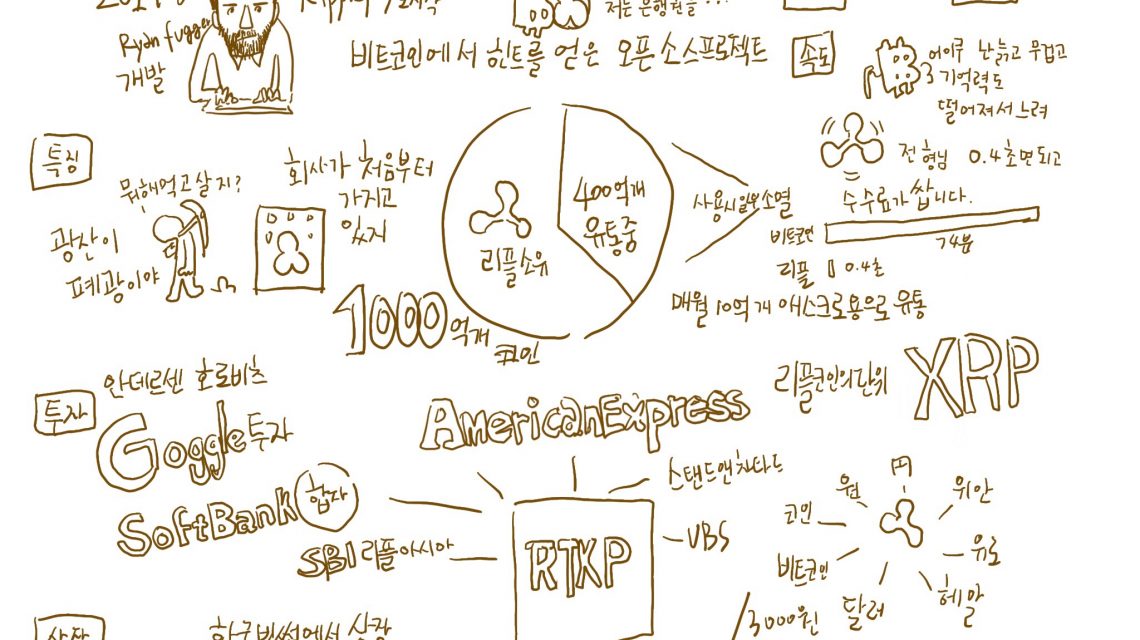 Ryan fugger
개발
저는 은행권을
비트코인에서 힌트를 얻은 오픈 소스프로젝트
속도
어이쿠 난 늙고 무겁고
기억력도
떨어져서 느려
전 형님 0.4초면 되고
수수료가 쌉니다.
특징
뭐해먹고 살지?
광산이
폐광이야
회사가 처음부터
가지고
있지
리플소유
400억개
유통중
사용시 일부 소멸
비트코인
74분
리플 0.4초
매월 10억개 애스크로용으로 유통
1000억개
코인
투자
안데르센 호로비츠
Goggle투자
SoftBank 합자
SBI 리플아시아
AmericanExpress
스탠드앤차타드
UBS
RTKP
리플코인의단위
XRP
円
원
위안
코인
유로
비트코인
헤알
달러
3000원
상장
한국 빗썸에서 상장